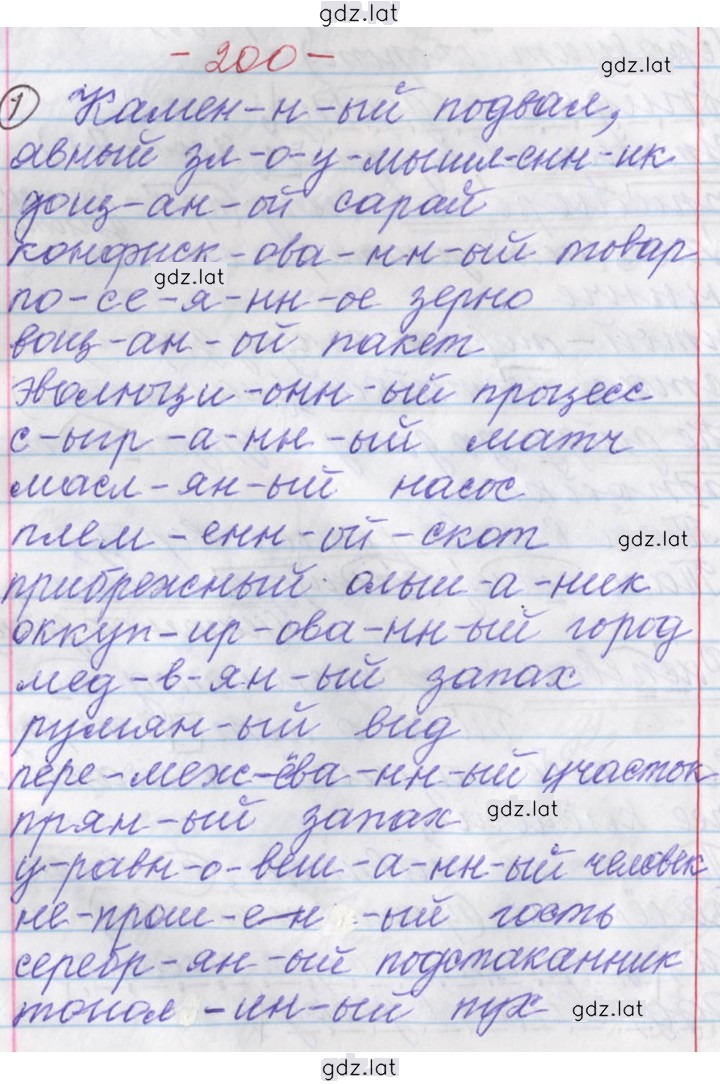 gdz.lat
- 200 -
gdz.lat
1 Камен-н-ый подвал,
авный зл-о-у-мышл-енн-ик
дощ-ан-ой сарай
конфиск-ова-нн-ый товар
gdz.lat
по-се-я-нн-ое зерно
вощ-ан-ой пакет
эволюци-онн-ый процесс
с-ыгр-а-нн-ый матч
масл-ян-ый насос
плем-енн-ой-скот gdz.lat
прибрежный олыи-а-ник
оккуп-ир-ова-нн-ый город
мед-в-ян-ый запах
румян-ый вид
пере-меж-ёва-нн-ый участок
прян-ый запах gdz.lat
у-равн-о-веш-а-нн-ый человек
не-прош-е-н-ый гость
серебр-ян-ый подстаканник
топол-ин-ый пух gdz.lat
gdz.lat